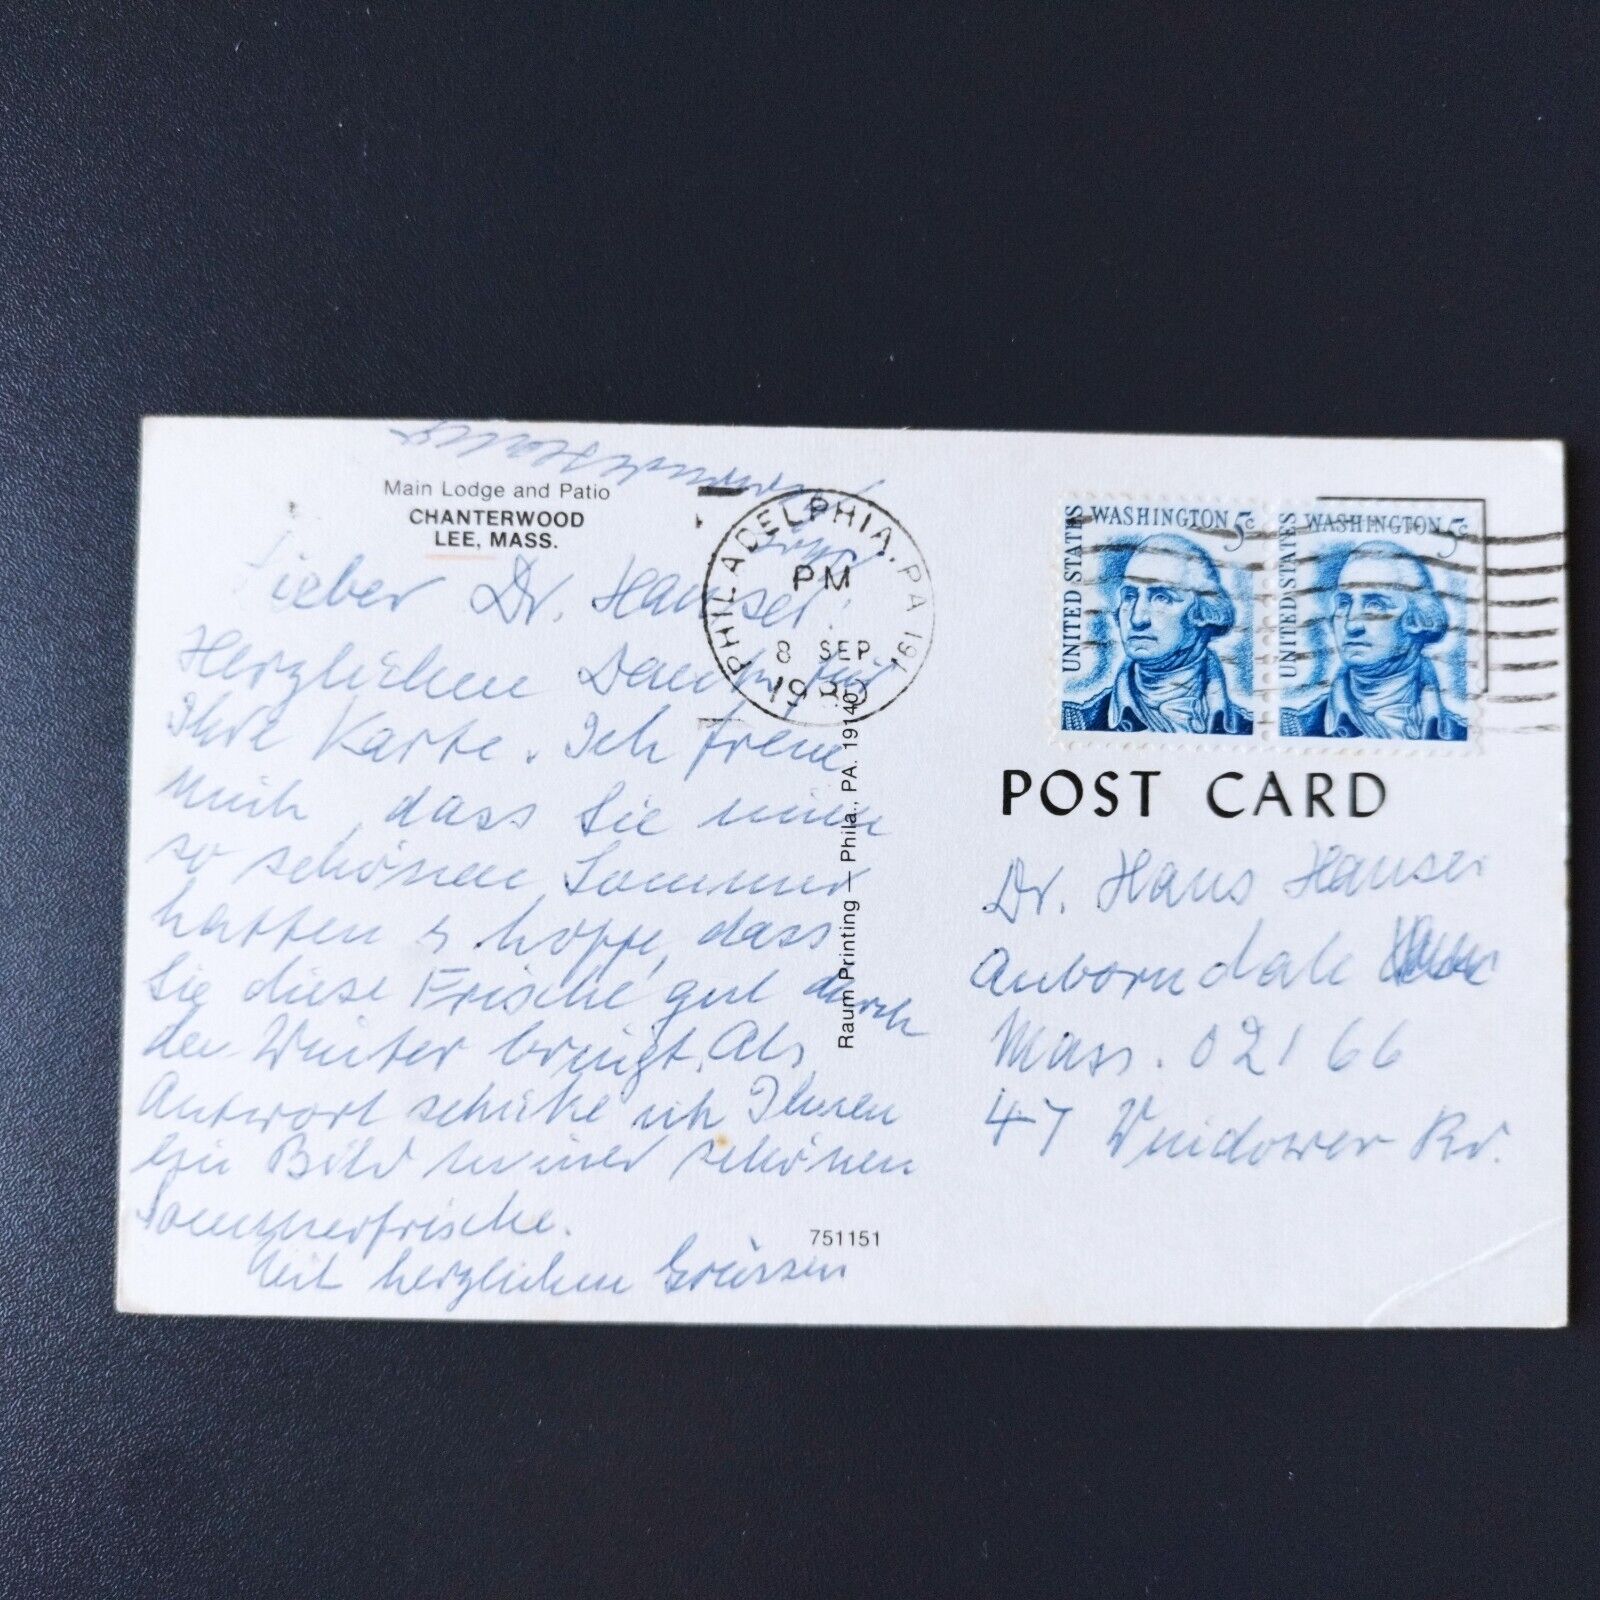 Main Lodge and Patio
CHANTERWOOD
LEE, MASS.
Lieber Dr. Hanser!
Herzlichen Dank für
Ihre Karte. Ich freue
mich, dass Sie einen
so schönen Sommer
hatten & hoffe, dass
Sie diese Frische gut durch
den Winter bringt. Als
Antwort schicke ich Ihnen
ein Bild meiner schönen
Sommerfrische.
Mit herzlichen Grüssen
Ihre
751151
Raum Printing — Phila., PA. 19140
PHILADELPHIA, PA 191
PM
8 SEP
UNITED STATES WASHINGTON 5c
UNITED STATES WASHINGTON 5c
POST CARD
Dr. Hans Hanser
Auborndale
Mass. 02166
47 Windover Rd.